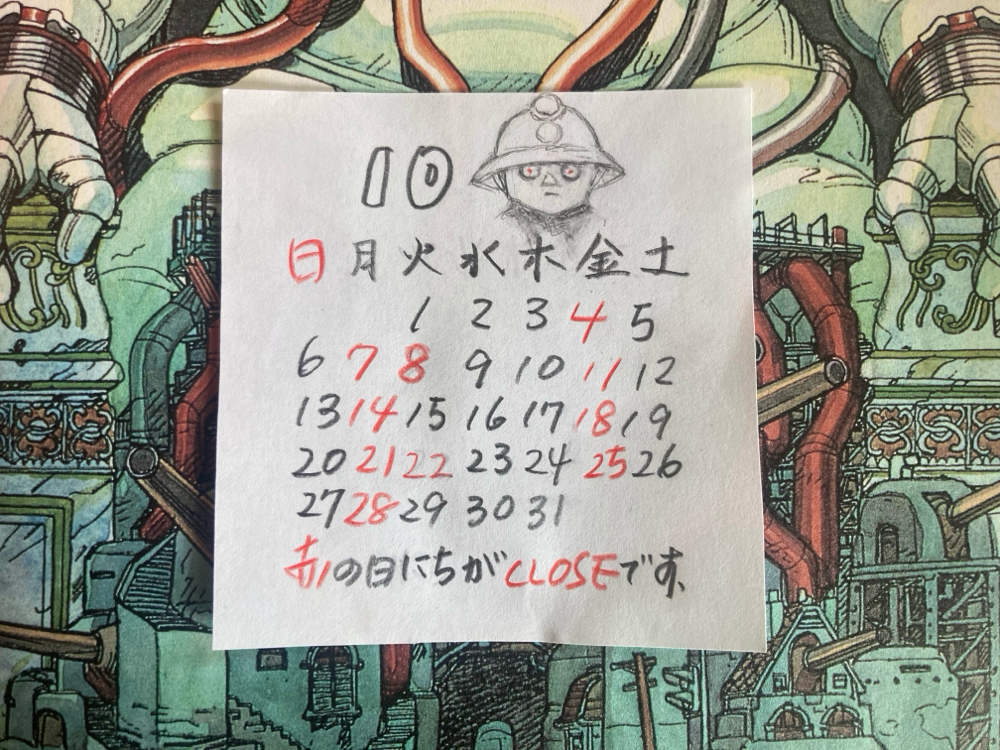 10
日 月 火 水 木 金 土
1 2 3 4 5
6 7 8 9 10 11 12
13 14 15 16 17 18 19
20 21 22 23 24 25 26
27 28 29 30 31
赤の日にちがCLOSEです、